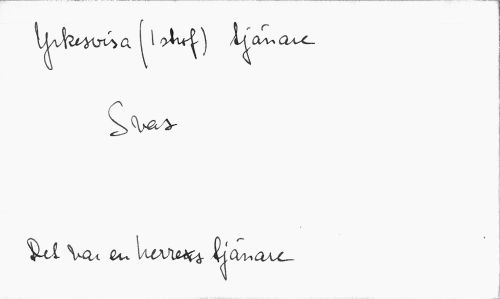 Yrkesvisa (1 strof) tjänare
Svar
Det var en herres tjänare